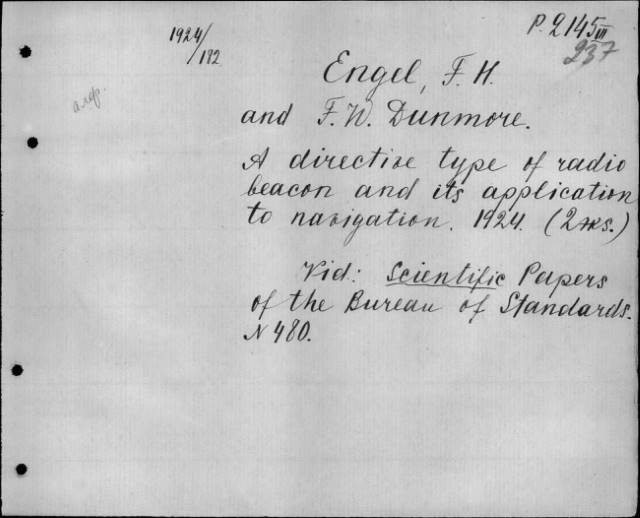 P. 2145 III
237
1924/
/182
алф.
Engel, F. H.
and F. W. Dunmore.
A directive type of radio
beacon and its application
to navigation. 1924. (2 экз.)
Vid: Scientific Papers
of the Bureau of Standards.
N 480.